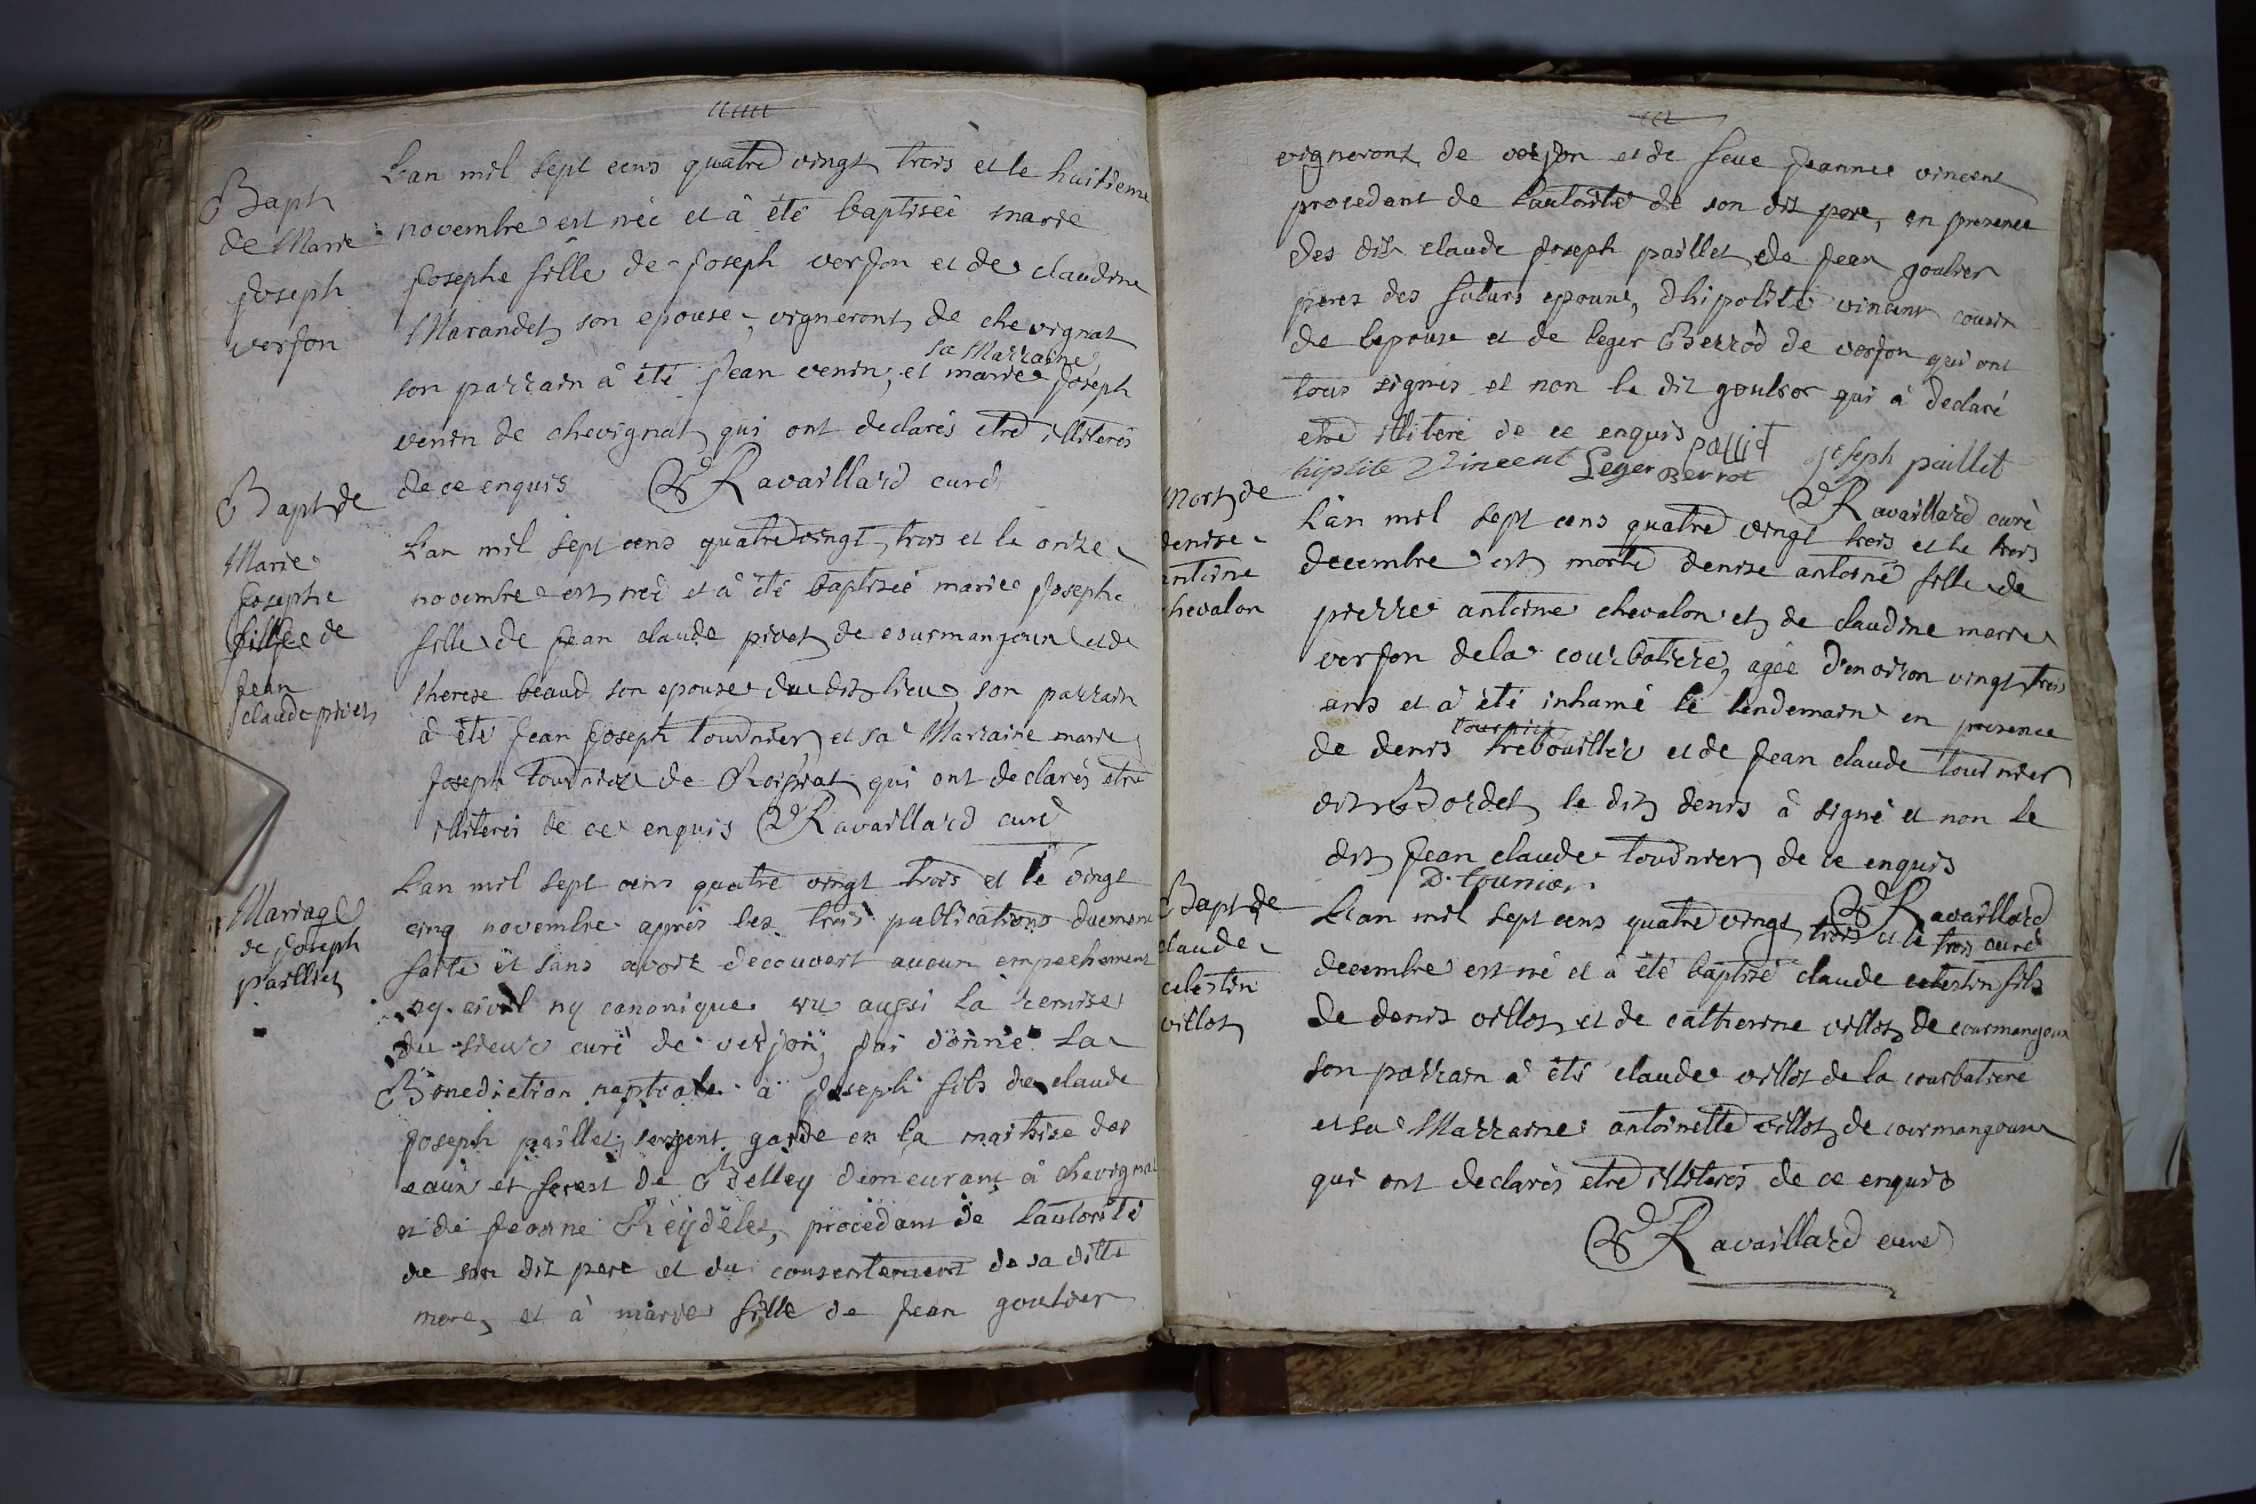 Bapt
de Marie
Joseph
verjon
L'an mil sept cens quatre vingt trois et le huitieme
novembre est née et à été baptiseé marie
Josephe fille de Joseph verjon et de claudine
Marandet son epouse, vignerons de chevignat
son parrain à été Jean venin, et sa Marraine marie Joseph
venin de chevignat qui ont declarés etre illiterés
de ce enquis Ravaillard curé
Bapt de
Marie
Josephe
fille de
Jean
claude pivet
L'an mil sept cens quatre vingt trois et le onze
novembre est née et à été baptiseé marie Josephe
fille de Jean claude pivet de courmangoux et de
therese beaud son epouse du dit lieu, son parrain
à été Jean Joseph tournier et sa Marraine marie
Joseph tournier de Roissiat qui ont declarés etre
illiterés de ce enquis Ravaillard curé
Mariage
de Joseph
paillet
L'an mil sept cens quatre vingt trois et le vingt
cinq novembre après les trois publications duement
faite et sans avoir decouvert aucun empechement
ny civil ny canonique vu aussi la remise
du sieur curé de verjon, j'ai donné la
Benediction nuptiale à Joseph fils de claude
Joseph paillet, sergent garde en la maitrise des
eaux et forest de Belley demeurant à chevignat
et de Jeanne Reydelet, procedant de l'autorité
de son dit pere et du consentement de sa ditte
mere, et à marie fille de Jean goulier
vigneront de verjon et de feue Jeanne vincent
procedant de l'autorité de son dit pere, en presence
des dits claude Joseph paillet et de Jean goulier
peres des futurs epoux, d'hipolite vincent cousin
de l'epouse et de leger Berrod de verjon qui ont
tous signés et non le dit goulier qui à declaré
etre illiteré de ce enquis palliet Joseph paillet
hiplite Vincent Leger Berrot
Ravaillard curé
Mort de
denise
antoine
chevalon
L'an mil sept cens quatre vingt trois et le trois
decembre est morte denise antoine fille de
pierre antoine chevalon et de claudine marie
verjon de la courbatiere, agée d'environ vingt trois
ans et à été inhumé le lendemain en presence
de denis trebouillet et de Jean claude tournier
dit Bordet le dit denis à signé et non le
dit Jean claude tournier de ce enquis
D. tournier
Ravaillard
curé
Bapt de
claude
celestin
villot
L'an mil sept cens quatre vingt trois et le trois
decembre est né et à été baptisé claude celestin fils
de denis villot et de catherine villot de courmangoux
son parrain à été claude villot de la courbatiere
et sa Marraine antoinette villot de courmangoux
qui ont declarés etre illiterés de ce enquis
Ravaillard curé